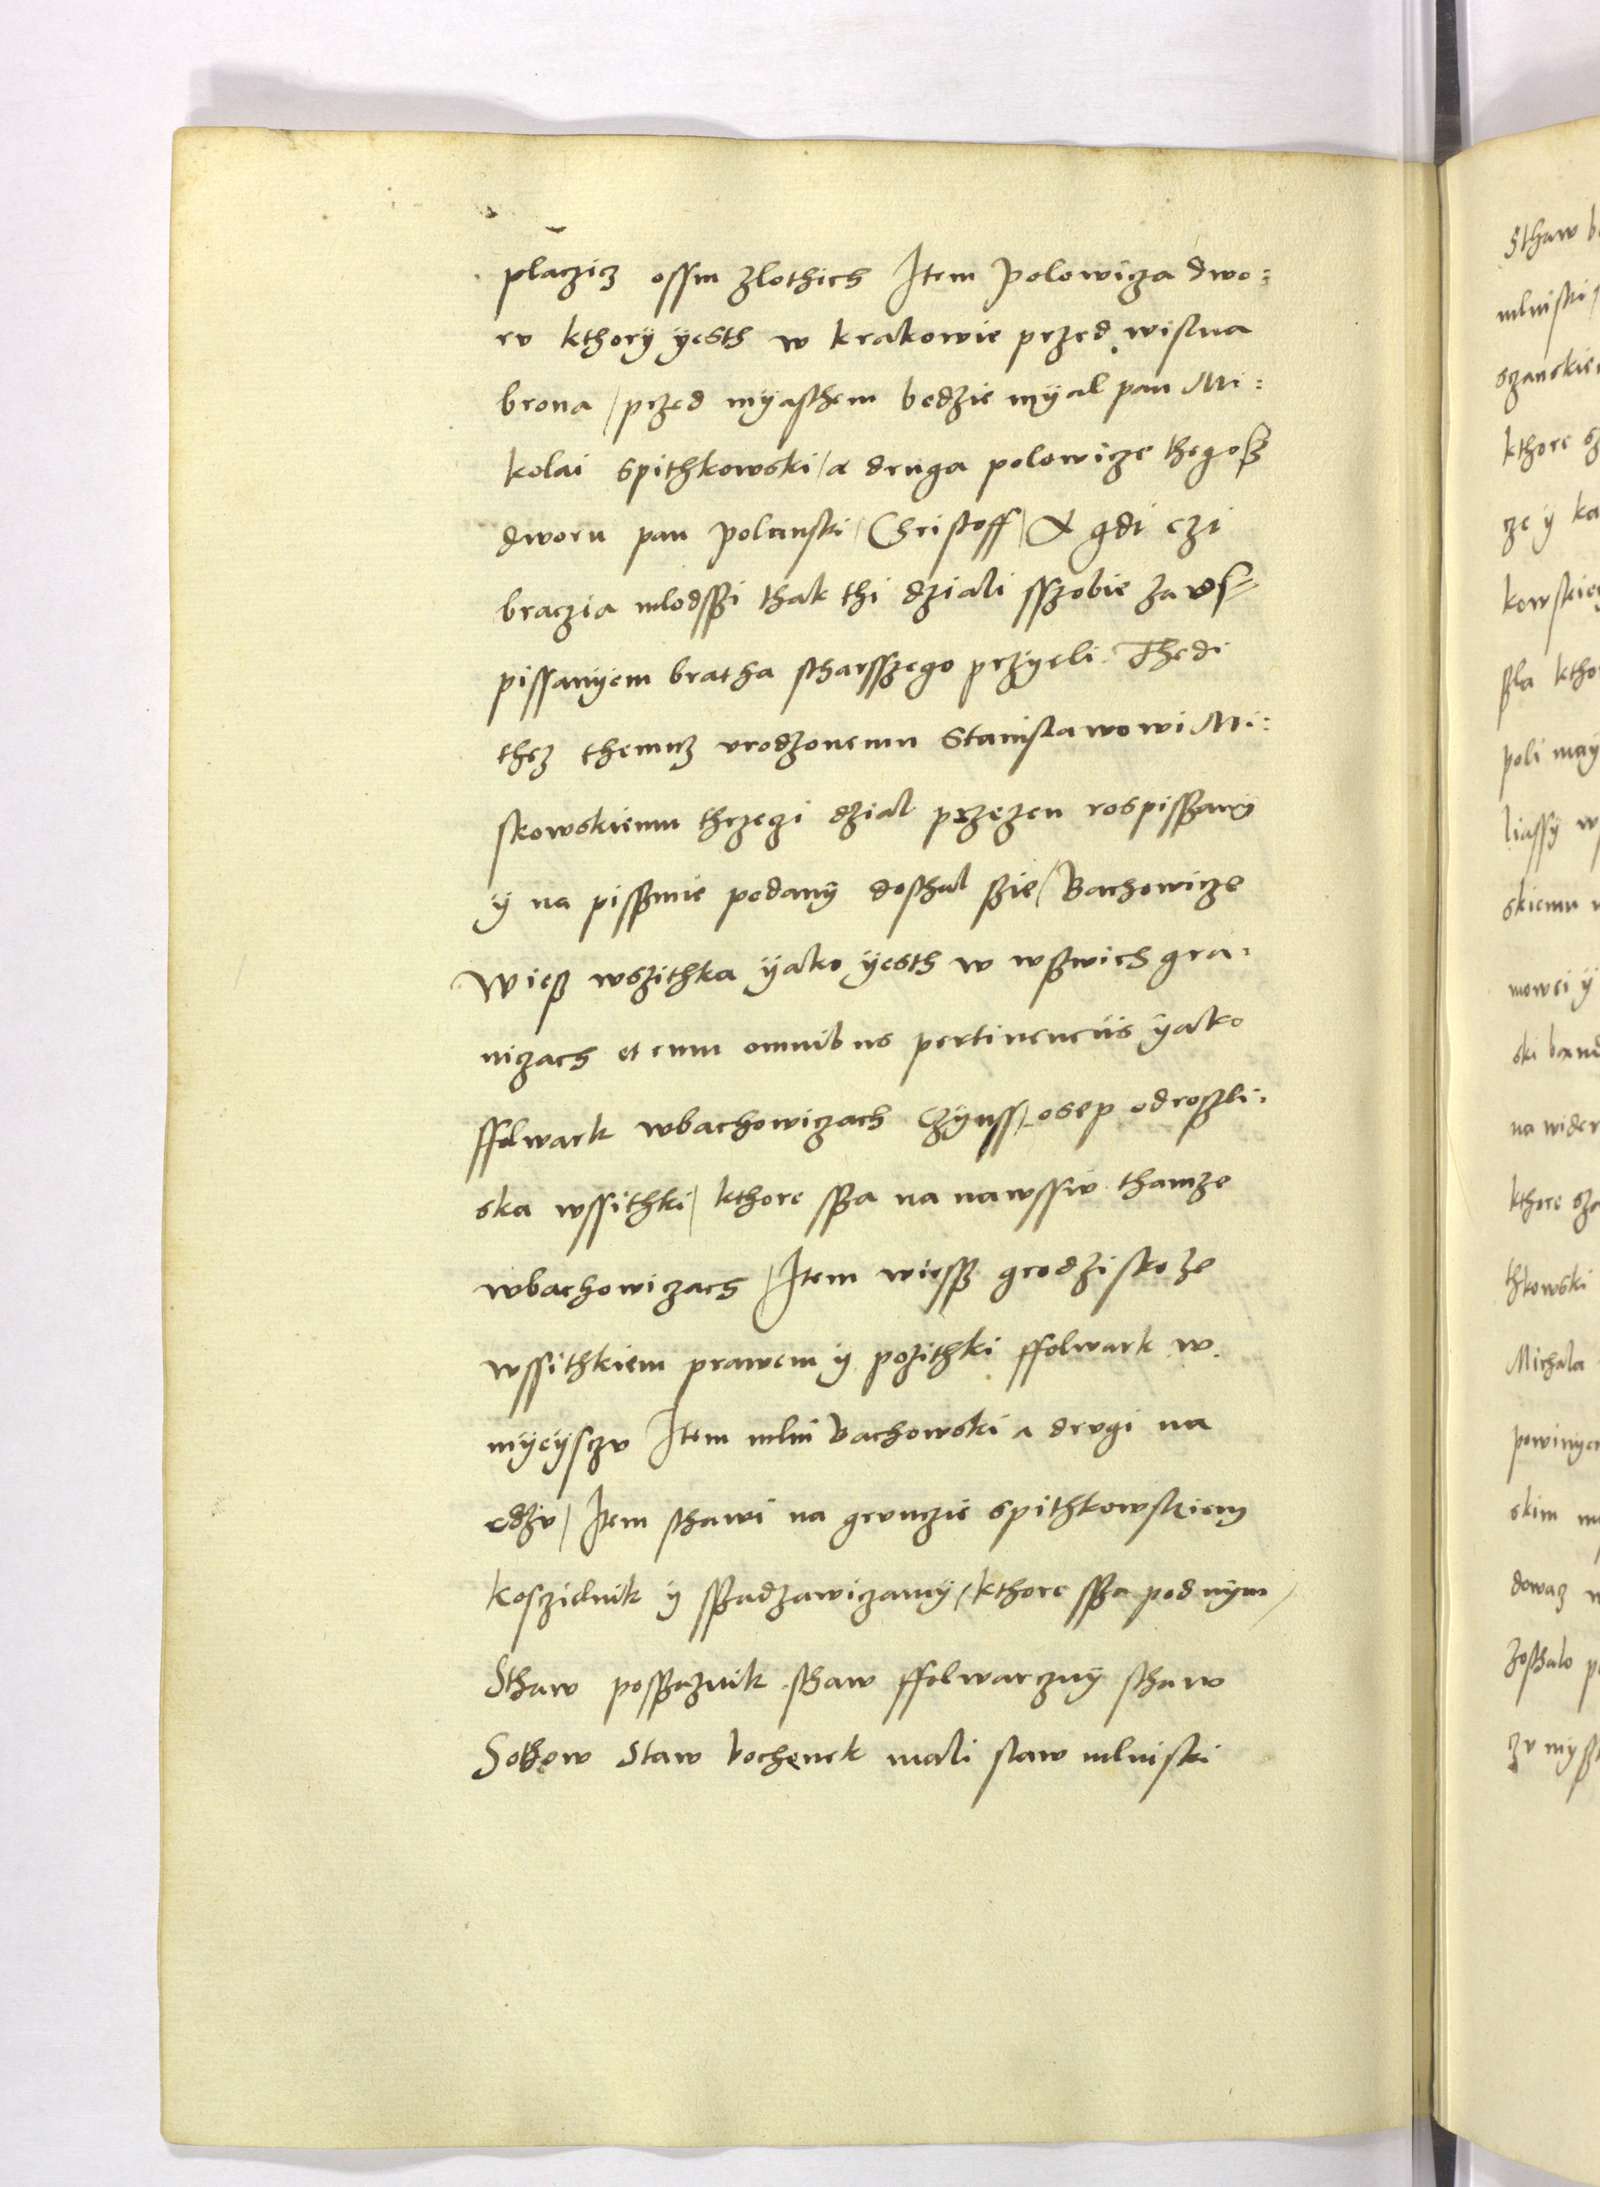 placzicz ossm zlothich Item Polowicza dwo:
rv kthory yesth w krakowie przed wislna
brona / przed myasthem bedzie myal pan Mi:
kolai Spithkowski / a druga polowicze thegosz
dworu pan Polanski / Christoff / A gdi czi
braczia mlodszi thak thi dziali sszobie za
pissanyem bratha stharsszego przyeli. Thedi
thez themuz vrodzonemu Stanislawowi Mi:
skowskiemu thrzeci dzial przezen rospiszany
y na piszmie podany dosthal szie / Bachowicze
Wiesz wszithka yako yesth w wszwich gra:
niczach et cum omnibus pertinenciis yako
ffolwark wbachowiczach Czynssz osep odroszli:
ska wssithki / kthore ssza na nawssiv thamze
wbachowiczach / Item wiessz grodzisko ze
wssithkiem prawem y pozithki ffolwark w
myeysczv Item mlin bachowski a drugi na
edzv / Item sthawi na grunczie spithkowskiem
Kosczielnik y sszadzawiczamy / kthore ssza pod nym /
Sthaw posszaznik sthaw ffolwarczny sthaw
Sothow Staw bochenek mali staw mlniski
Sthaw
mlniski
kthore
cze y
poli may
skiemu
mowci y
kthore sza
thkowski
Michala
skim
dowacz
Zosthalo